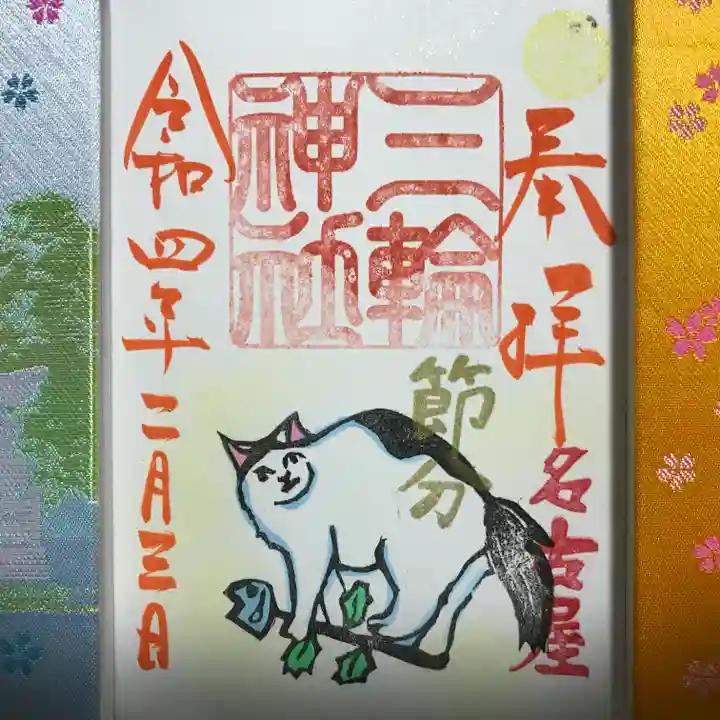 奉拝
名古屋
三輪
神社
節分
令和四年二月三日